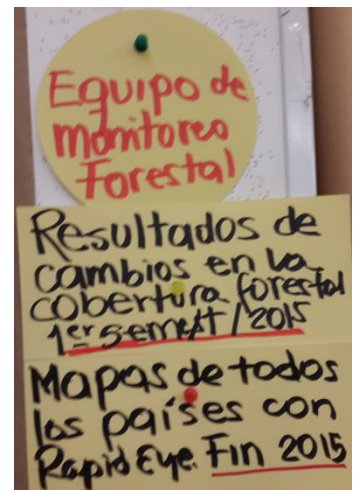 Equipo de
monitoreo
Forestal
Resultados de
cambios en la
cobertura forestal
1er semest/2015
Mapas de todos
los países con
Rapid Eye. Fin 2015